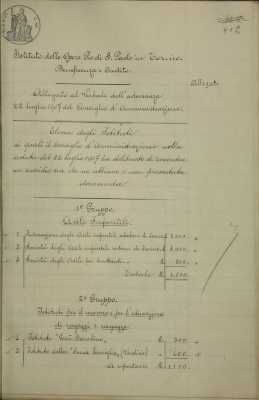 412
Istituto delle Opere Pie di S. Paolo in Torino.
Beneficenza e Credito.
Allegato
Allegato al Verbale dell'adunanza
22 luglio 1907 del Consiglio d'Amministrazione.
Elenco degli Istituti
ai quali il Consiglio d'Amministrazione nella
seduta del 22 luglio 1907 ha deliberato di concedere
un sussidio sia che ne abbiano o non presentata
domanda
1º Gruppo.
Asili Infantili.
1 Federazione degli Asili infantili suburbani di Torino £ 2.000. "
2 Società degli Asili infantili di Torino £ 3.000 "
3 Società degli Asili pei lattanti £ 500 "
Totale £ 5.500 "
2º Gruppo.
Istituti per il ricovero e per l'educazione
di ragazzi e ragazze
1 Istituto "Gesù Bambino" £ 500 "
2 Istituto della "Sacra Famiglia" £ 600 "
A riportarsi £ 1.100